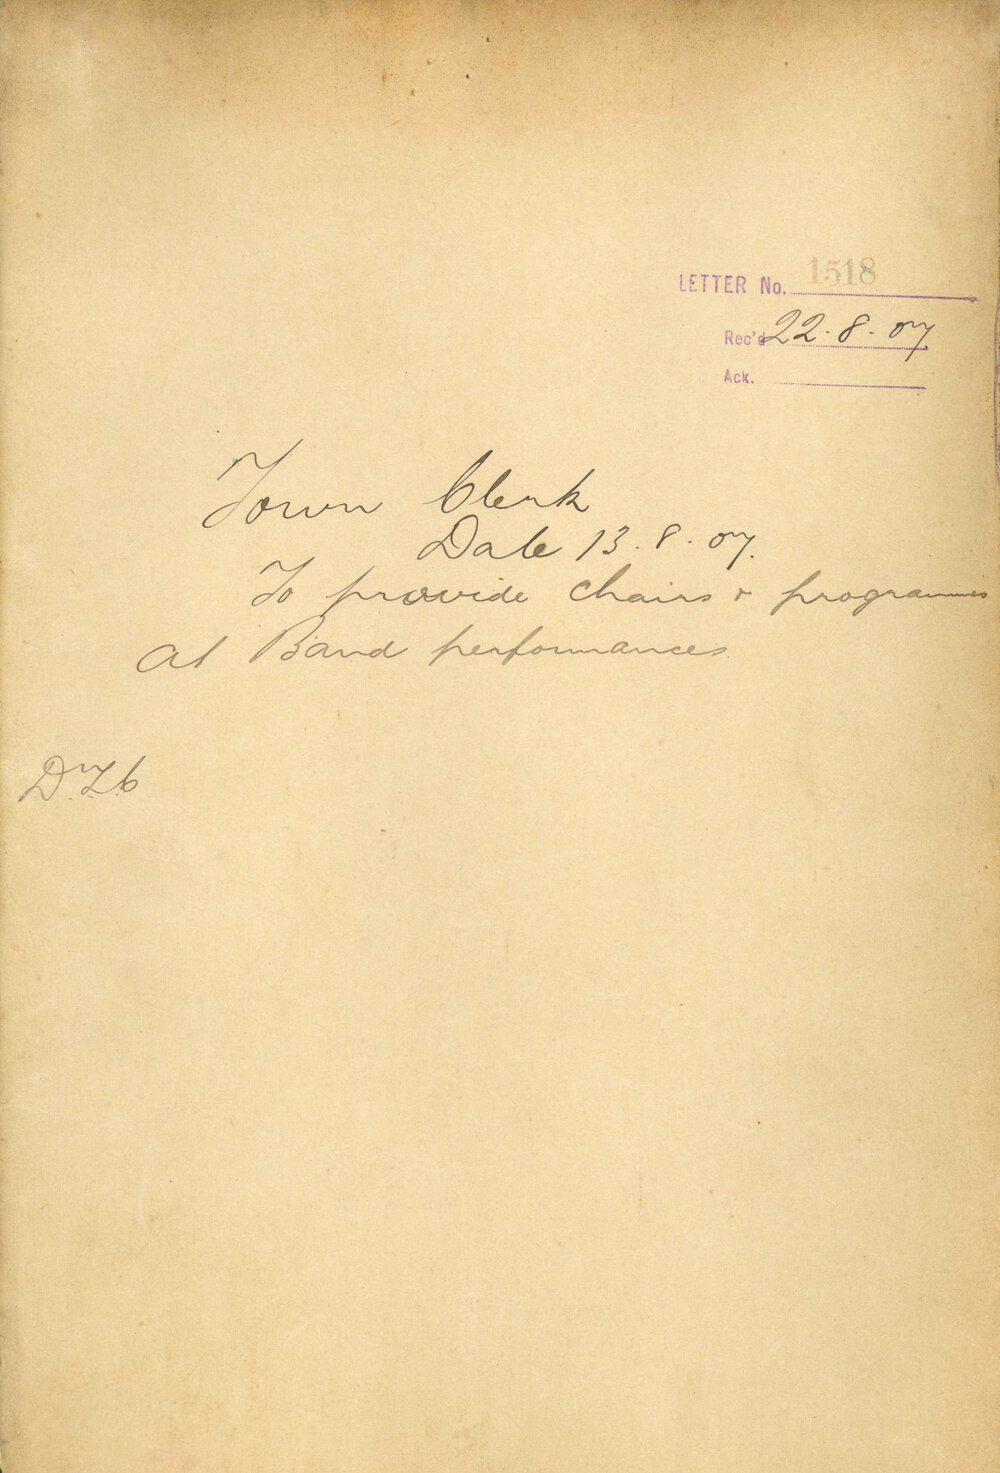 LETTER No. 1518
Rec'd 22.8.07
Ack.
Town Clerk
Date 13.8.07.
To provide chairs & programmes
At Band performances